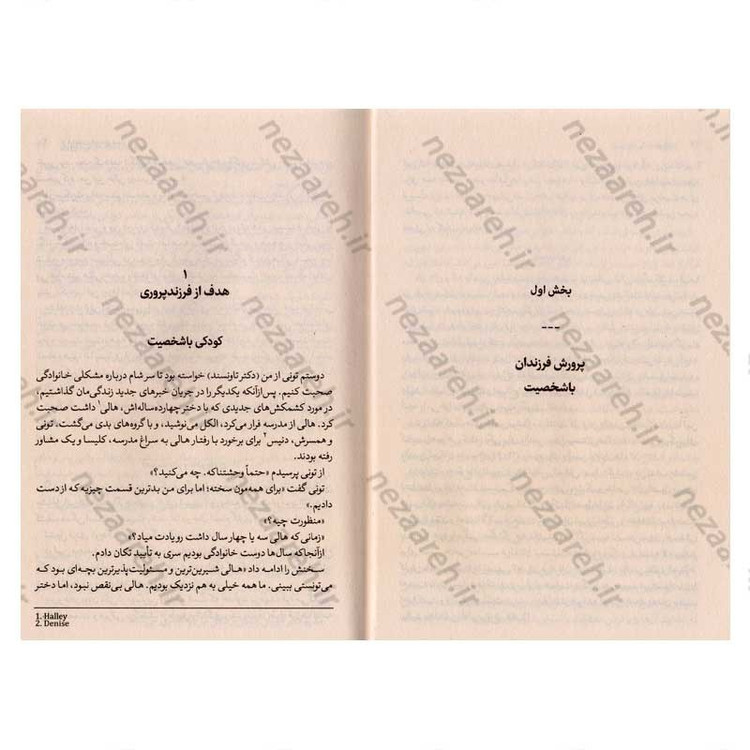 بخش اول
---
پرورش فرزندان
باشخصیت
۱
هدف از فرزندپروری
کودکی باشخصیت
دوستم تونی از من (دکتر تاونسند) خواسته بود تا سر شام درباره مشکلی خانوادگی
صحبت کنیم. پس‌ازآنکه یکدیگر را در جریان خبرهای جدید زندگی‌مان گذاشتیم،
در مورد کشمکش‌های جدیدی که با دختر چهارده‌ساله‌اش، هالی۱ داشت صحبت
کرد. هالی از مدرسه فرار می‌کرد، الکل می‌نوشید، و با گروه‌های بدی می‌گشت. تونی
و همسرش، دنیس۲ برای برخورد با رفتار هالی به سراغ مدرسه، کلیسا و یک مشاور
رفته بودند.
از تونی پرسیدم «حتماً وحشتناکه. چه می‌کنید؟»
تونی گفت «برای همه‌مون سخته؛ اما برای من بدترین قسمت چیزیه که از دست
دادیم.»
«منظورت چیه؟»
«زمانی که هالی سه یا چهار سال داشت رو یادت میاد؟»
ازآنجاکه سال‌ها دوست خانوادگی بودیم سری به تأیید تکان دادم.
سخنش را ادامه داد «هالی شیرین‌ترین و مسئولیت‌پذیرترین بچه‌ای بود که
می‌تونستی ببینی. ما همه خیلی به هم نزدیک بودیم. هالی بی‌نقص نبود، اما دختر
1. Halley
2. Denise
nezaareh.ir
nezaareh.ir
nezaareh.ir
nezaareh.ir
nezaareh.ir
nezaareh.ir
nezaareh.ir
nezaareh.ir
nezaareh.ir
nezaareh.ir
nezaareh.ir